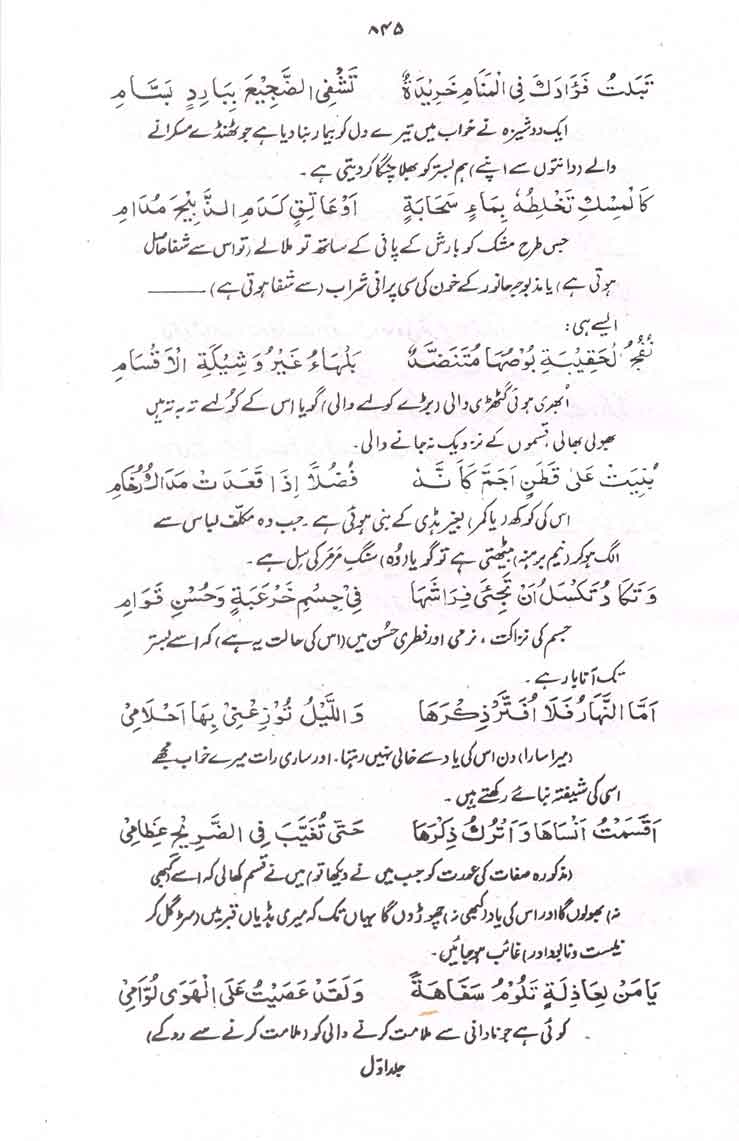 ۸۴۵
تَبَلَتْ فُؤَادَكَ فِی الْمَنَامِ خَرِيْدَةٌ تَشْفِی الضَّجِيْعَ بِبَارِدٍ بَسَّامِ
ایک دوشیزہ نے خواب میں تیرے دل کو بیمار بنا دیا ہے جو ٹھنڈے مسکرانے
والے (دانتوں سے اپنے) ہم بستر کو بھلا چنگا کر دیتی ہے ۔
كَالْمِسْكِ تَخْلِطُهٗ بِمَاءِ سَحَابَةٍ اَوْعَاتِقٍ كَدَمِ الذَّبِيْحِ مُدَامِ
جس طرح مشک کو بارش کے پانی کے ساتھ تو ملالے (تو اس سے شفا حاصل
ہوتی ہے) یا مذبوحہ جانور کے خون کی سی پرانی شراب (سے شفا ہوتی ہے) ———
ایسے ہی :
نُفُجُ الْحَقِيْبَةِ بُوْصُهَا مُتَنَضِّدٌ بَلْهَاءُ غَيْرُ وَشِيْكَةِ الْاَقْسَامِ
اُبھری ہوئی گٹھڑی والی (بڑے کولھے والی) گویا اس کے کولھے تہ بہ تہ ہیں
بھولی بھالی قسموں کے نزدیک نہ جانے والی ۔
بُنِيَتْ عَلٰى قَطَنٍ اَجَمَّ كَاَنَّهٗ فُضُلًا اِذَا قَعَدَتْ مَدَاكُ رُخَامِ
اس کی کوکھ (یا کمر) بغیر ہڈی کے بنی ہوئی ہے ۔ جب وہ مکلف لباس سے
الگ ہو کر (نیم برہنہ) بیٹھتی ہے تو گویا (وہ) سنگِ مرمر کی سِل ہے ۔
وَتَكَادُ تَكْسَلُ اَنْ تَجِئَ فِرَاشَهَا فِیْ جِسْمِ خَرْعَبَةٍ وَحُسْنِ قَوَامِ
جسم کی نزاکت ، نرمی اور فطری حُسن میں (اس کی حالت یہ ہے) کہ اسے بستر
تک آنا بار ہے ۔
اَمَّا النَّهَارُ فَلَا اُفَتِّرُ ذِكْرَهَا وَاللَّيْلُ تُوْزِعُنِیْ بِهَا اَحْلَامِیْ
(میرا سارا) دن اس کی یاد سے خالی نہیں رہتا ۔ اور ساری رات میرے خواب مجھے
اسی کی شیفتہ بنائے رکھتے ہیں ۔
اَقْسَمْتُ اَنْسَاهَا وَاَتْرُكُ ذِكْرَهَا حَتّٰى تُغَيَّبَ فِی الضَّرِيْحِ عِظَامِیْ
(مذکورہ صفات کی عورت کو جب میں نے دیکھا تو) میں نے قسم کھا لی کہ اسے کبھی
نہ) بھولوں گا اور اس کی یاد (کبھی نہ) چھوڑوں گا یہاں تک کہ میری ہڈیاں قبر میں (سڑ گل کر
نیست و نابود اور) غائب ہو جائیں ۔
يَا مَنْ لِعَاذِلَةٍ تَلُوْمُ سَفَاهَةً وَلَقَدْ عَصَيْتُ عَلَى الْهَوٰى لُوَّامِیْ
کوئی ہے جو نادانی سے ملامت کرنے والی کو (ملامت کرنے سے روکے)
جلد اوّل